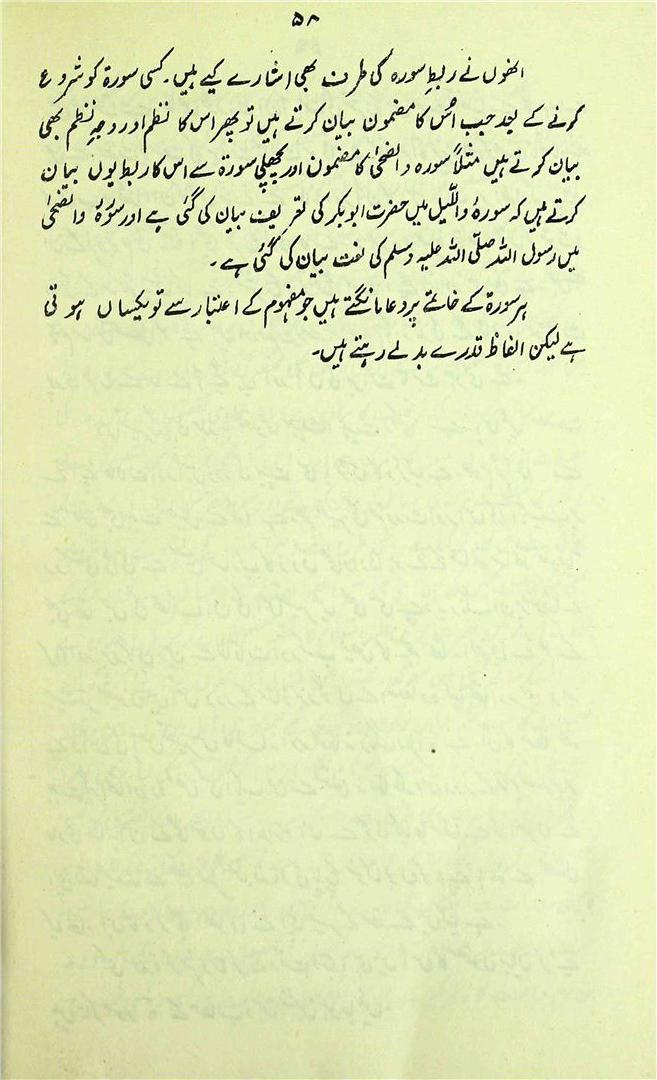 ۵۸
انھوں نے ربطِ سورہ کی طرف بھی اشارے کیے ہیں۔ کسی سورۃ کو شروع
کرنے کے بعد جب اُس کا مضمون بیان کرتے ہیں تو پھر اس کا نظم اور وجہِ نظم بھی
بیان کرتے ہیں مثلاً سورہ والضحیٰ کا مضمون اور پچھلی سورۃ سے اس کا ربط یوں بیان
کرتے ہیں کہ سورۂ واللّیل میں حضرت ابوبکر کی تعریف بیان کی گئی ہے اور سورۃ والضحیٰ
میں رسول اللہ صلّی اللہ علیہ وسلم کی نعت بیان کی گئی ہے۔
ہر سورۃ کے خاتمے پر دعا مانگتے ہیں جو مفہوم کے اعتبار سے تو یکساں ہوتی
ہے لیکن الفاظ قدرے بدلے رہتے ہیں۔